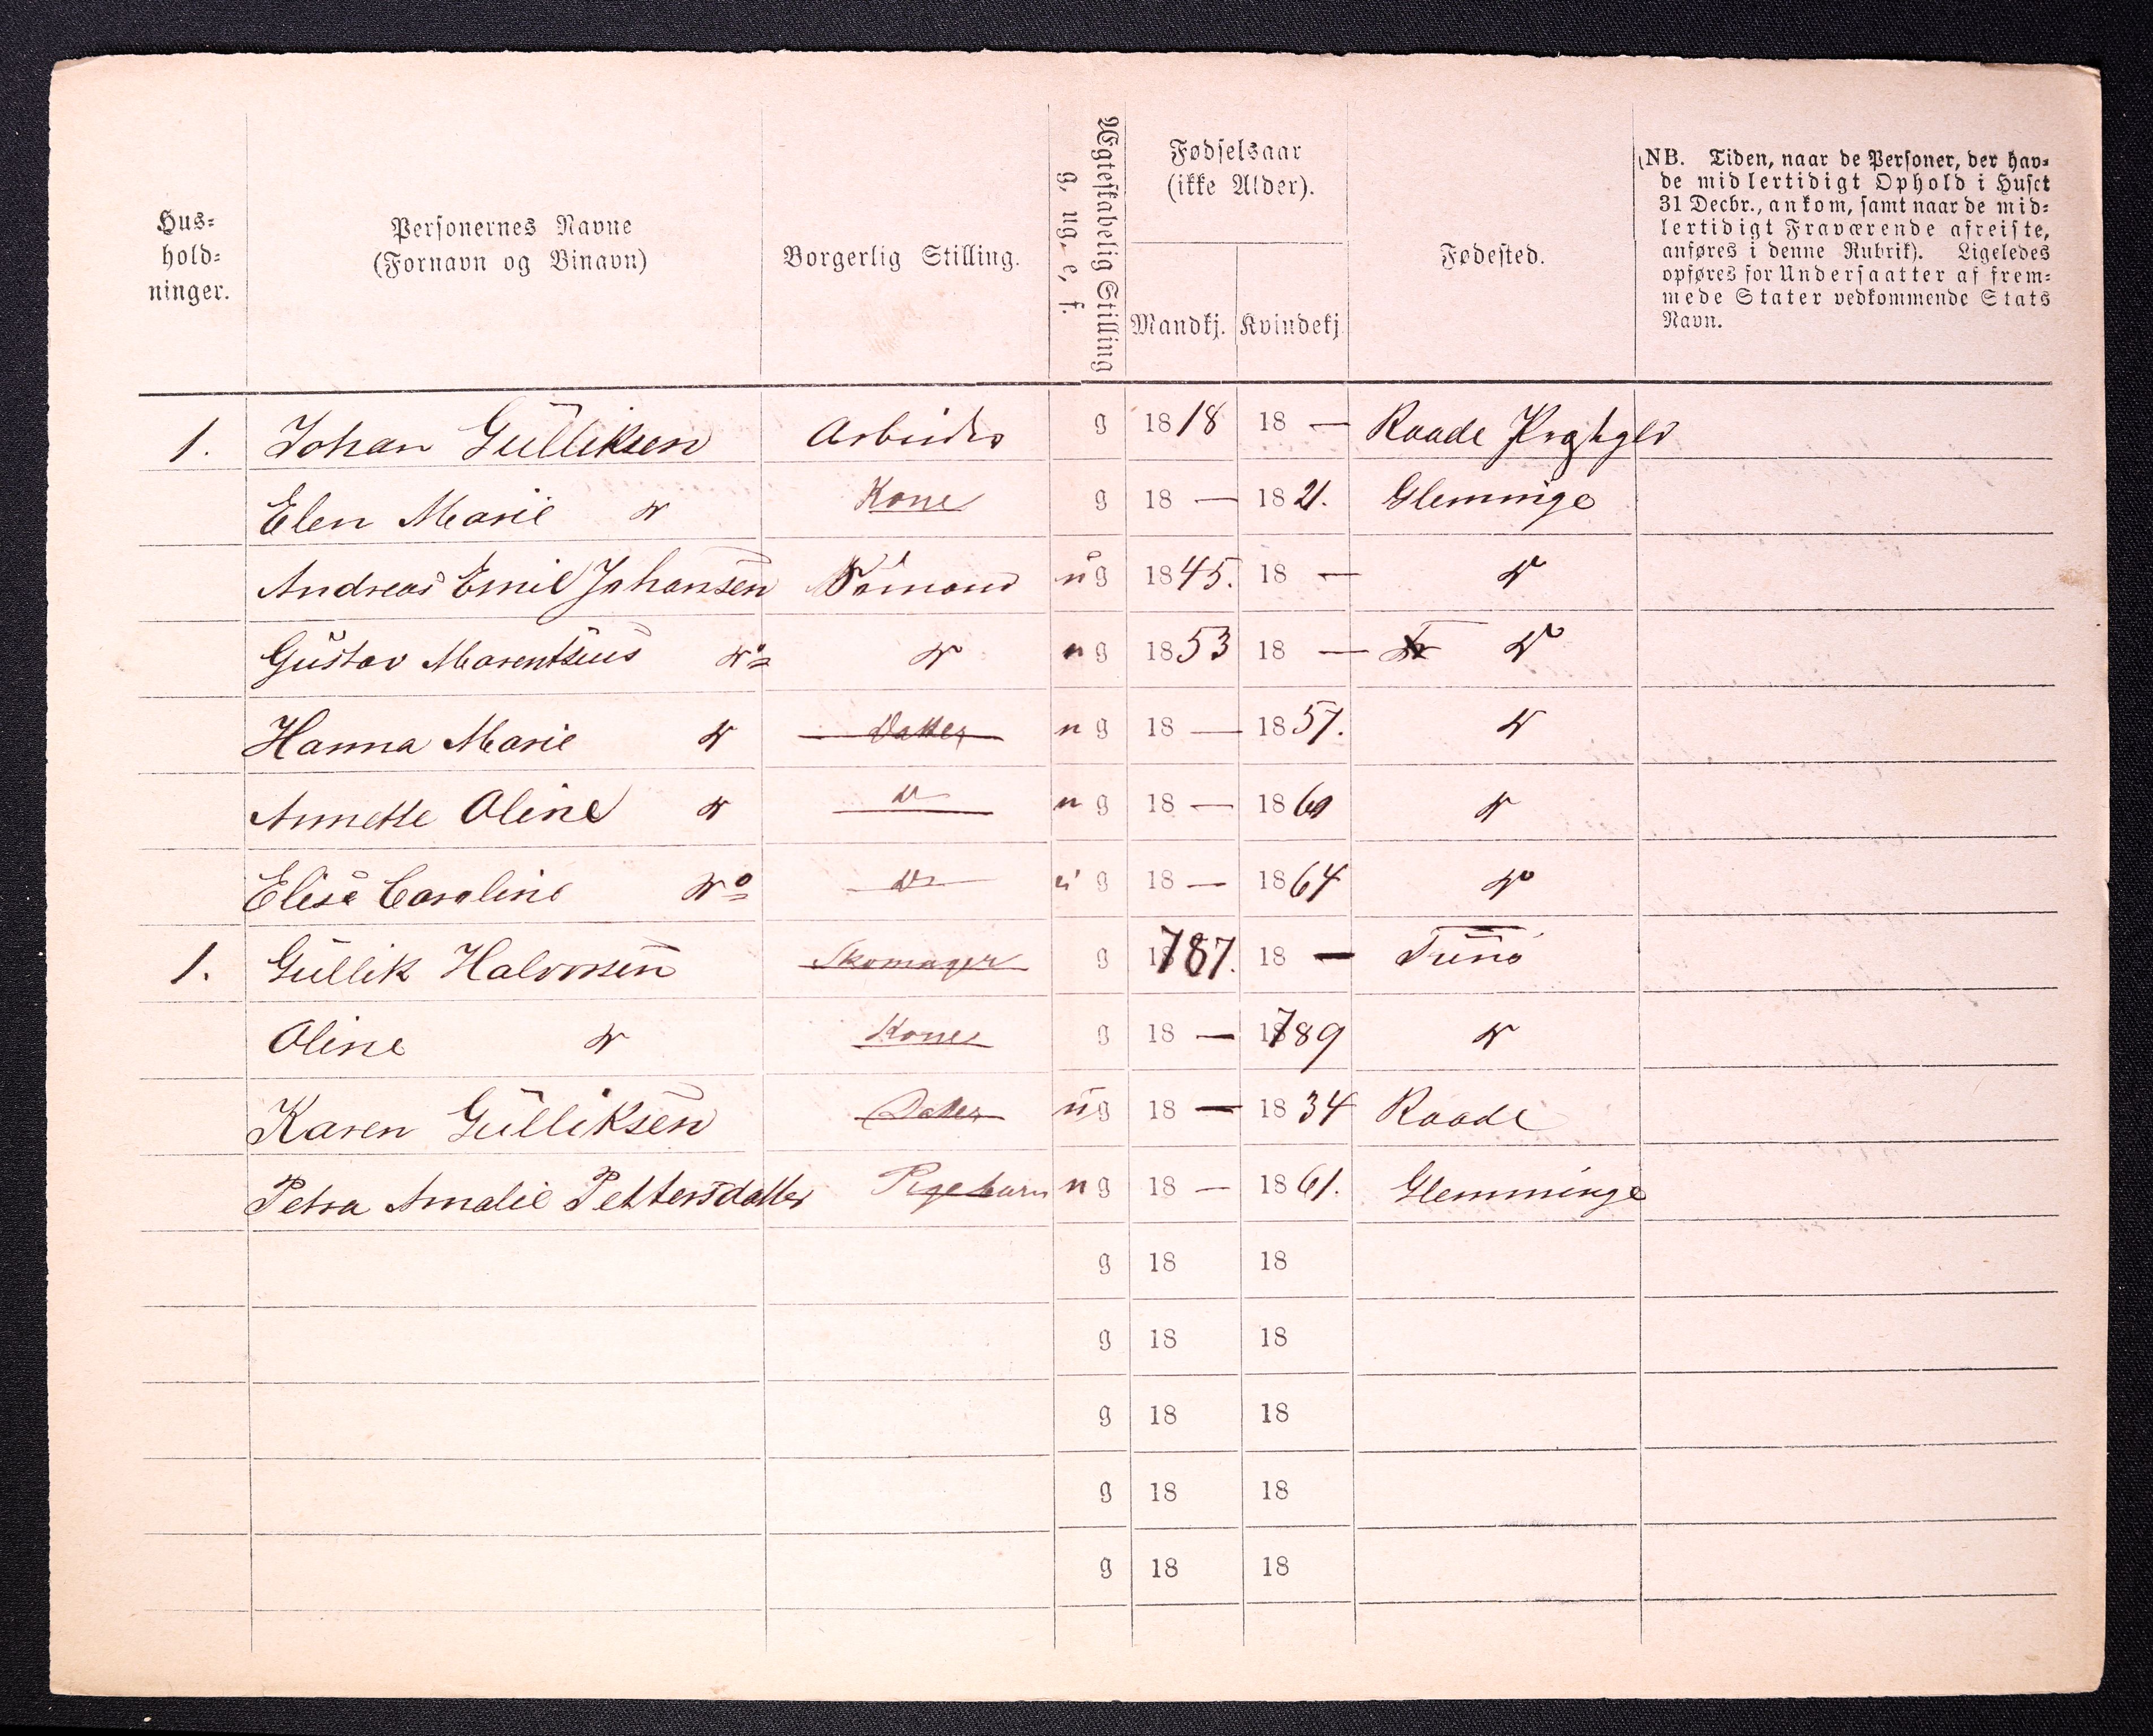 Hus-
hold-
ninger.
Personernes Navne
(Fornavn og Binavn)
Borgerlig Stilling.
Ægteskabelig Stilling
g, ug, e, f.
Fødselsaar
(ikke Alder).
Mandkj. Kvindekj
Fødested.
(NB. Tiden, naar de Personer, der hav-
de midlertidigt Ophold i Huset
31 Decbr., ankom, samt naar de mid-
lertidigt Fraværende afreiste,
anføres i denne Rubrik). Ligeledes
opføres for Undersaatter af frem-
mede Stater vedkommende Stats
Navn.
1. Johan Gulliksen Arbeider g 1818 18 — Raade
Elen Marie do Kone g 18 — 1821. Glemminge
Andreas Emil Johansen Sømand ug 1845. 18 — do
Gustav Marentsius do do ug 1853 18 — do
Hanna Marie do Datter ug 18 — 1857. do
Annette Oline do do ug 18 — 18 do
Elise Caroline do do ug 18 — 1864 do
1. Gullik Halvorsen Skomager g 1787. 18 — Tunø
Oline do Kone g 18 — 1789 do
Karen Gulliksen Datter ug 18 — 1834 Raade
Petra Amalie Pettersdatter Pigebarn ug 18 — 1861. Glemminge
g 18 18
g 18 18
g 18 18
g 18 18
g 18 18